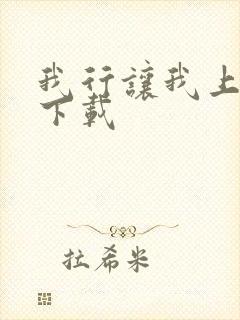 我行讓我上
下載
拉希米